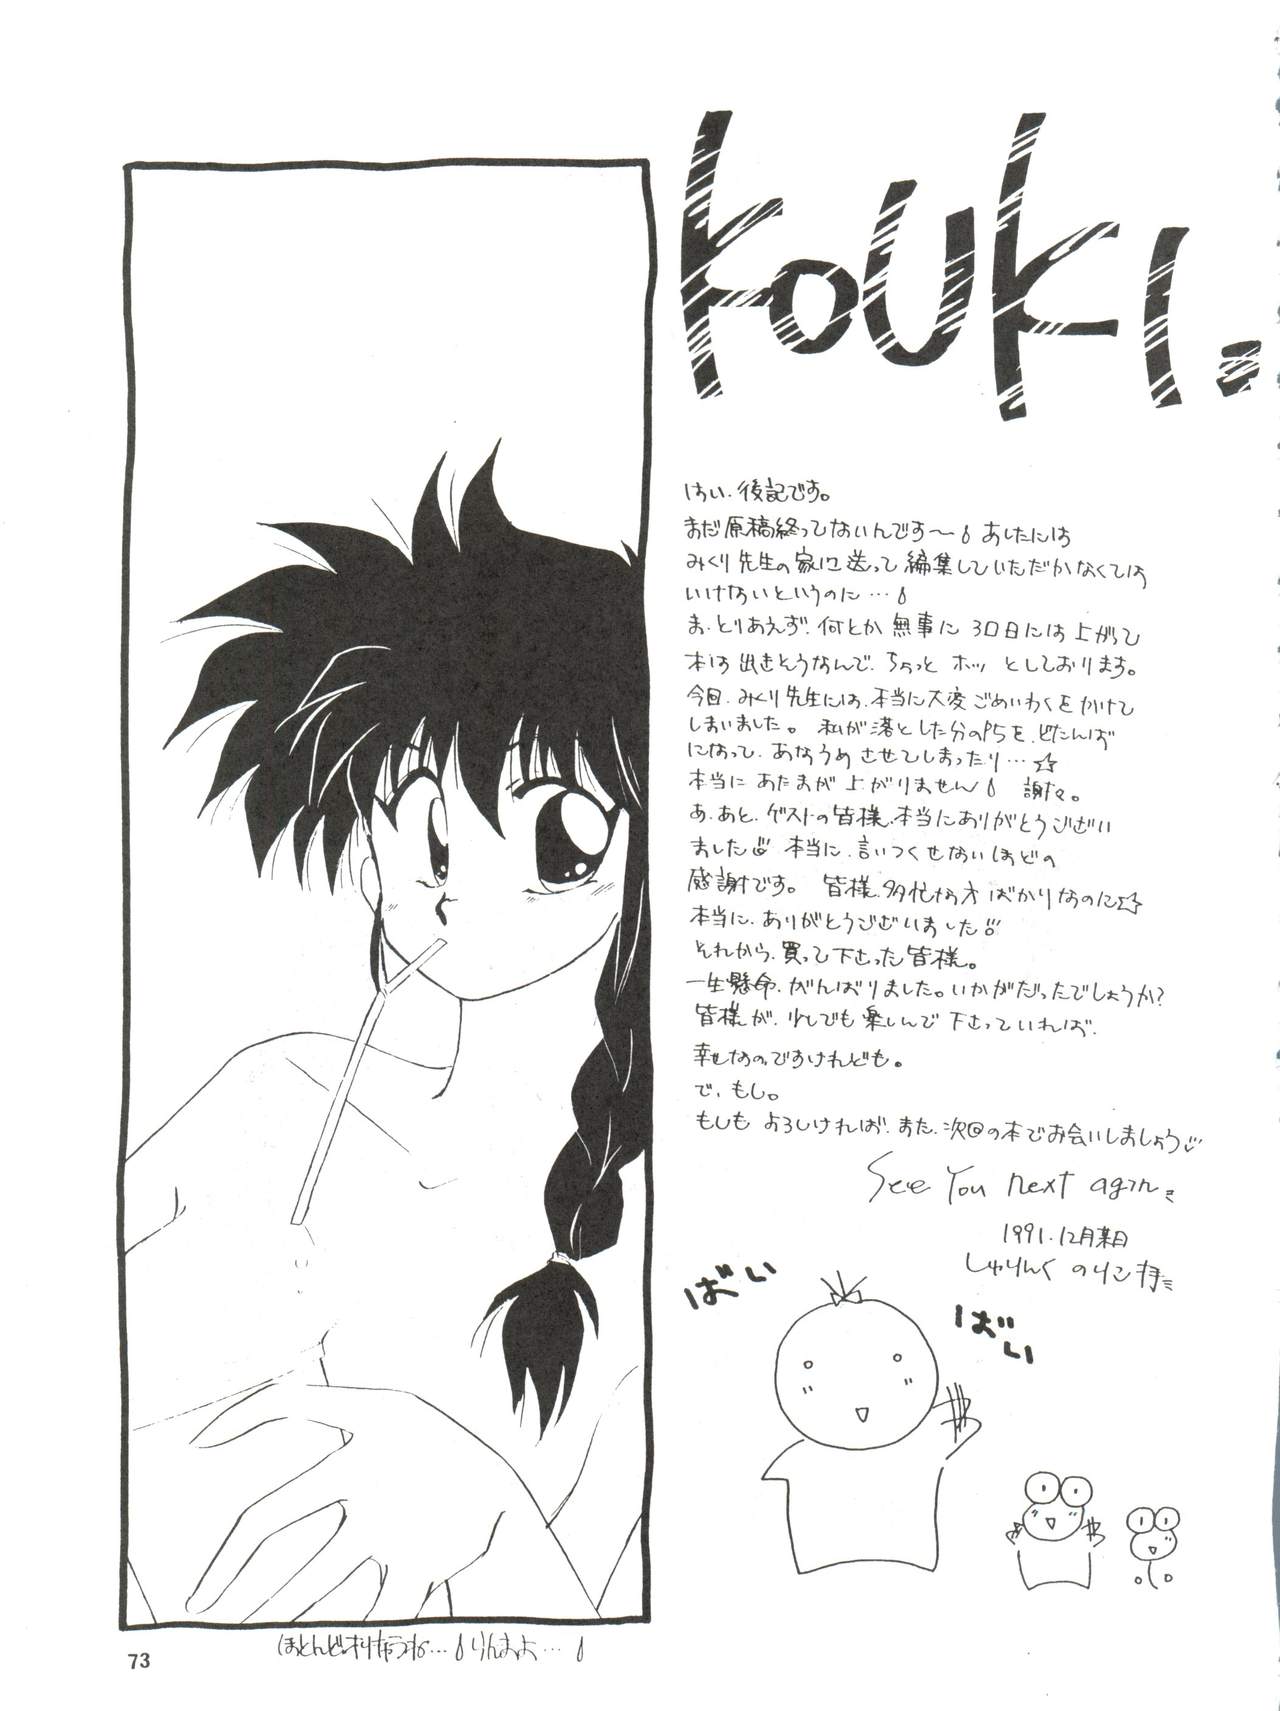 KOUKI.
はい.後記です。
まだ原稿終ってないんです〜 あしたには
みくり先生の家に送って編集していただかなくては
いけないというのに…
ま.とりあえず.何とか無事に30日には上がって
本は出きそうなんで.ちょっとホッとしております。
今回.みくり先生には.本当に大変ごめいわくをかけて
しまいました。私が落とした分のP5を.どたんば
になって.あなうめさせてしまったり…☆
本当にあたまが上がりません 謝々。
あ.あと.ゲストの皆様.本当にありがとうござい
ました 本当に.言いつくせないほどの
感謝です。皆様.多忙な方ばかりなのに☆
本当に.ありがとうございました
それから.買って下さった皆様。
一生懸命.がんばりました。いかがだったでしょうか?
皆様が.少しでも楽しんで下さっていれば.
幸せなのですけれども。
で.もし。
もしもよろしければ.また.次回の本でお会いしましょう
See You next again
1991.12月末日
しゅりんくのりこ
ばい
ばい
ほとんどオリキャラね… らんまよ…
73